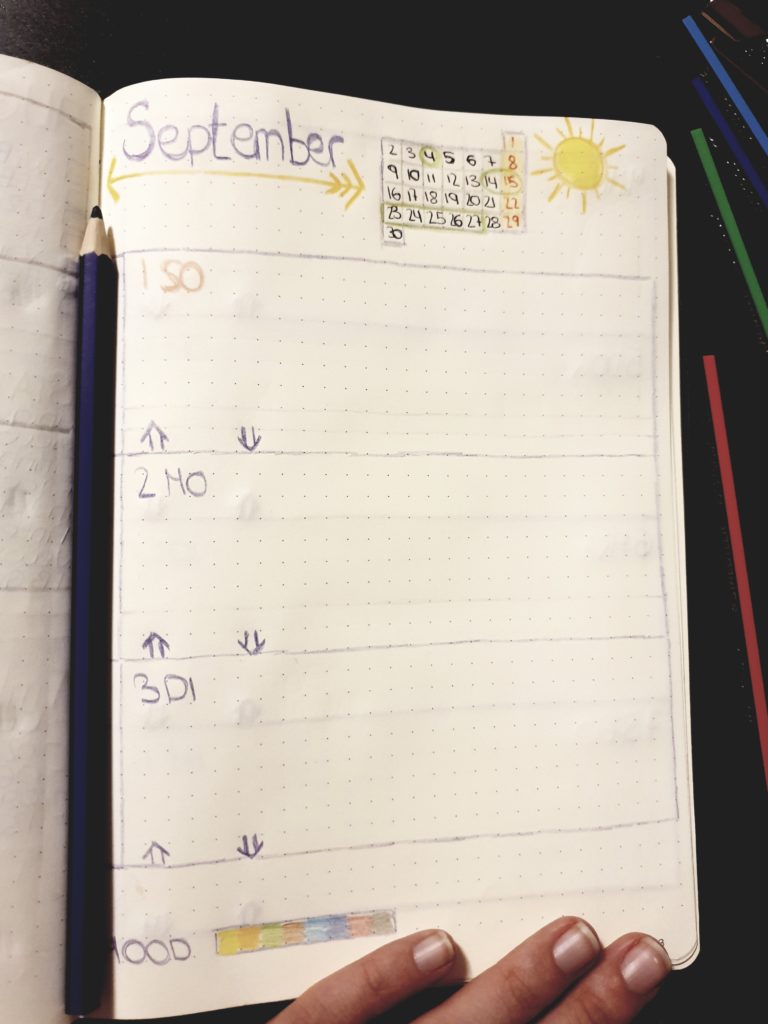 September
1
2 3 4 5 6 7 8
9 10 11 12 13 14 15
16 17 18 19 20 21 22
23 24 25 26 27 28 29
30
1 SO
2 MO
3 DI
MOOD